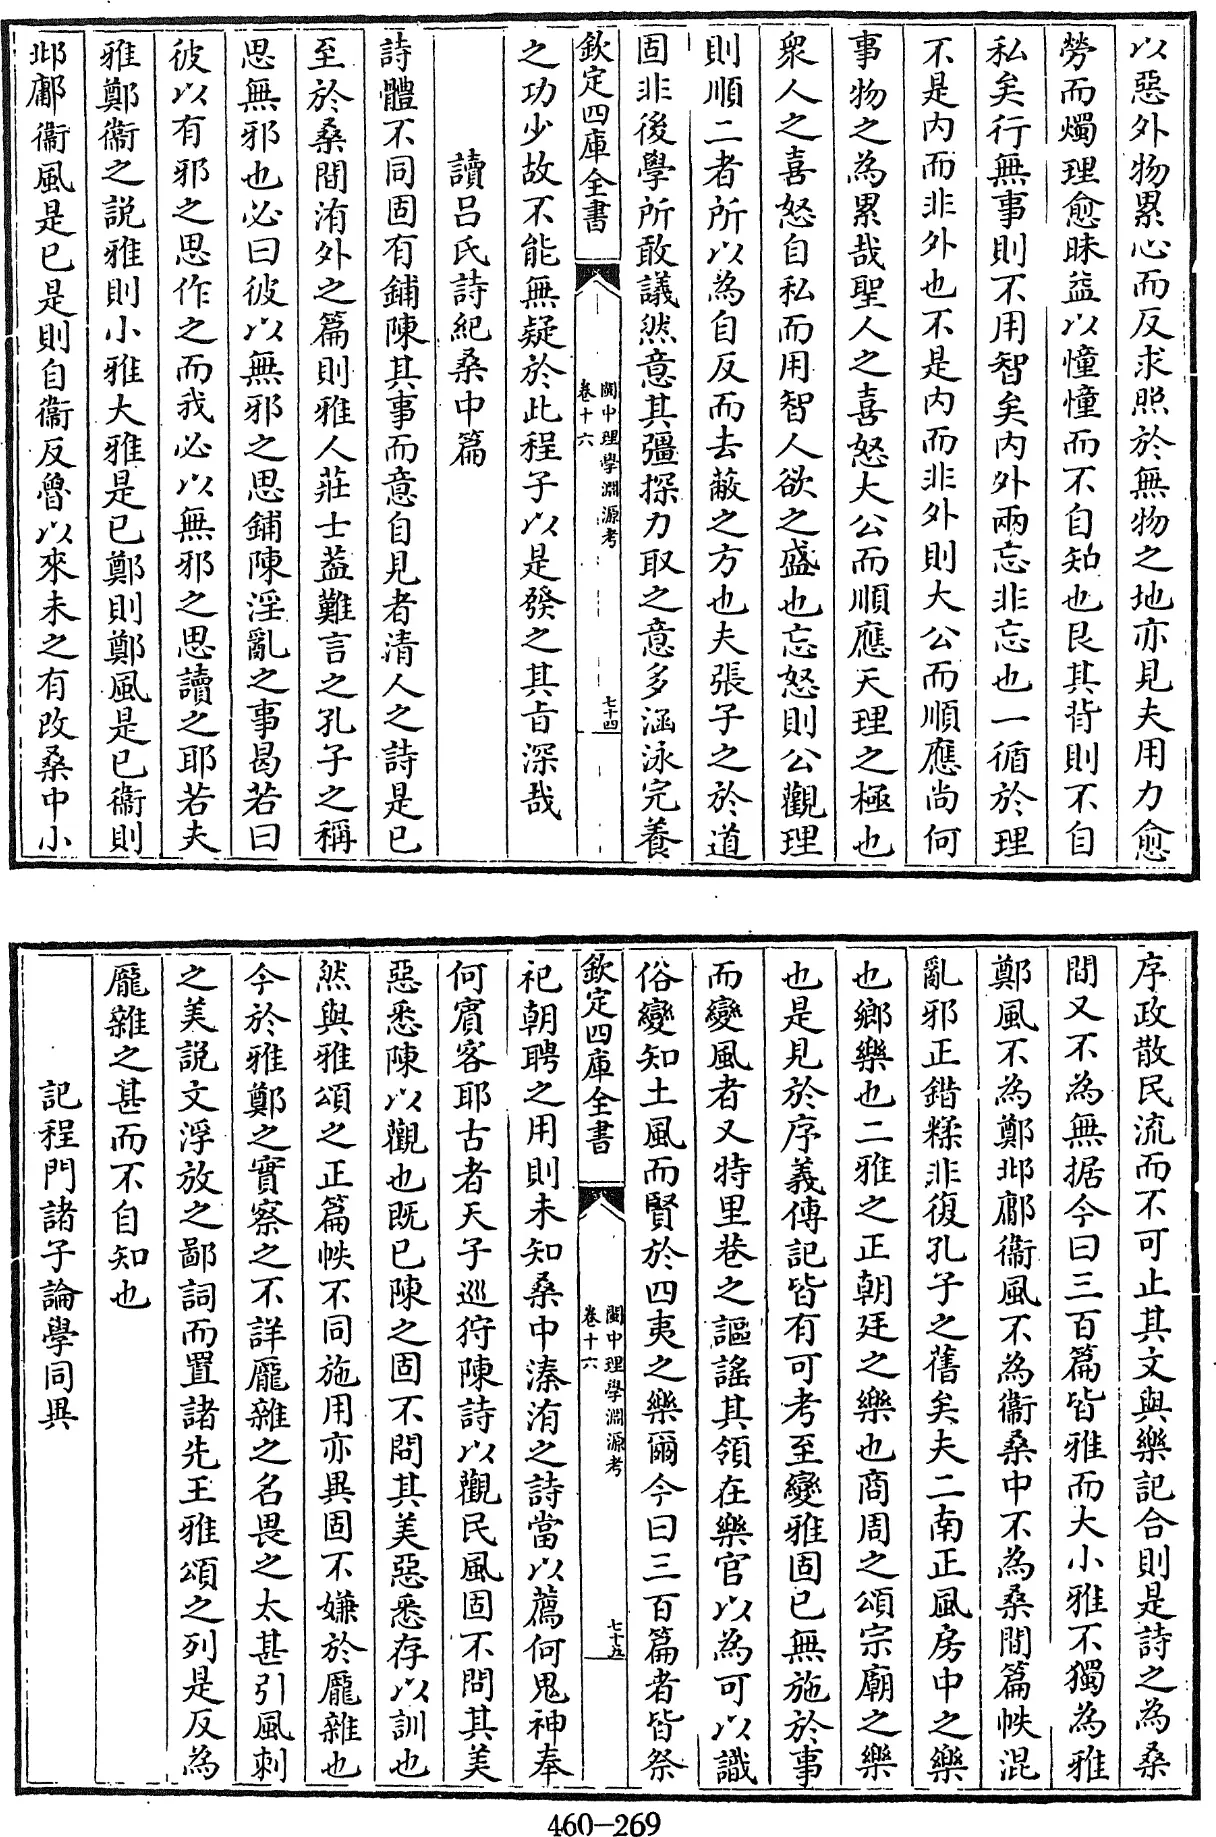 以惡外物累心而反求照於無物之地亦見夫用力愈
勞而燭理愈昧益以憧憧而不自知也艮其背則不自
私矣行無事則不用智矣内外兩忘非忘也一循於理
不是内而非外也不是内而非外則大公而順應尚何
事物之為累哉聖人之喜怒大公而順應天理之極也
衆人之喜怒自私而用智人欲之盛也忘怒則公觀理
則順二者所以為自反而去蔽之方也夫張子之於道
固非後學所敢議然意其彊探力取之意多涵泳完養
欽定四庫全書
閩中理學淵源考
卷十六
七十四
之功少故不能無疑於此程子以是發之其㫖深哉
讀吕氏詩紀桑中篇
詩體不同固有鋪陳其事而意自見者清人之詩是已
至於桑間洧外之篇則雅人莊士益難言之孔子之稱
思無邪也必曰彼以無邪之思鋪陳淫亂之事曷若曰
彼以有邪之思作之而我必以無邪之思讀之耶若夫
雅鄭衞之説雅則小雅大雅是已鄭則鄭風是已衞則
邶鄘衞風是已是則自衞反魯以來未之有改桑中小
序政散民流而不可止其文與樂記合則是詩之為桑
間又不為無据今曰三百篇皆雅而大小雅不獨為雅
鄭風不為鄭邶鄘衞風不為衞桑中不為桑間篇帙混
亂邪正錯糅非復孔子之舊矣夫二南正風房中之樂
也鄉樂也二雅之正朝廷之樂也商周之頌宗廟之樂
也是見於序義傳記皆有可考至變雅固已無施於事
而變風者又特里巷之謳謡其領在樂官以為可以識
俗變知土風而賢於四夷之樂爾今曰三百篇者皆祭
欽定四庫全書
閩中理學淵源考
卷十六
七十五
祀朝聘之用則未知桑中溱洧之詩當以薦何鬼神奉
何賓客耶古者天子廵狩陳詩以觀民風固不問其美
惡悉陳以觀也既已陳之固不問其美惡悉存以訓也
然與雅頌之正篇帙不同施用亦異固不嫌於龎雜也
今於雅鄭之實察之不詳龎雜之名畏之太甚引風刺
之美説文浮放之鄙詞而置諸先王雅頌之列是反為
龎雜之甚而不自知也
記程門諸子論學同異
460-269